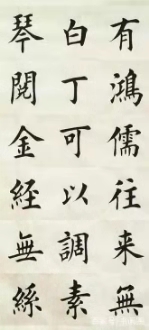 有鴻儒往来無
白丁可以調素
琴閱金經無絲